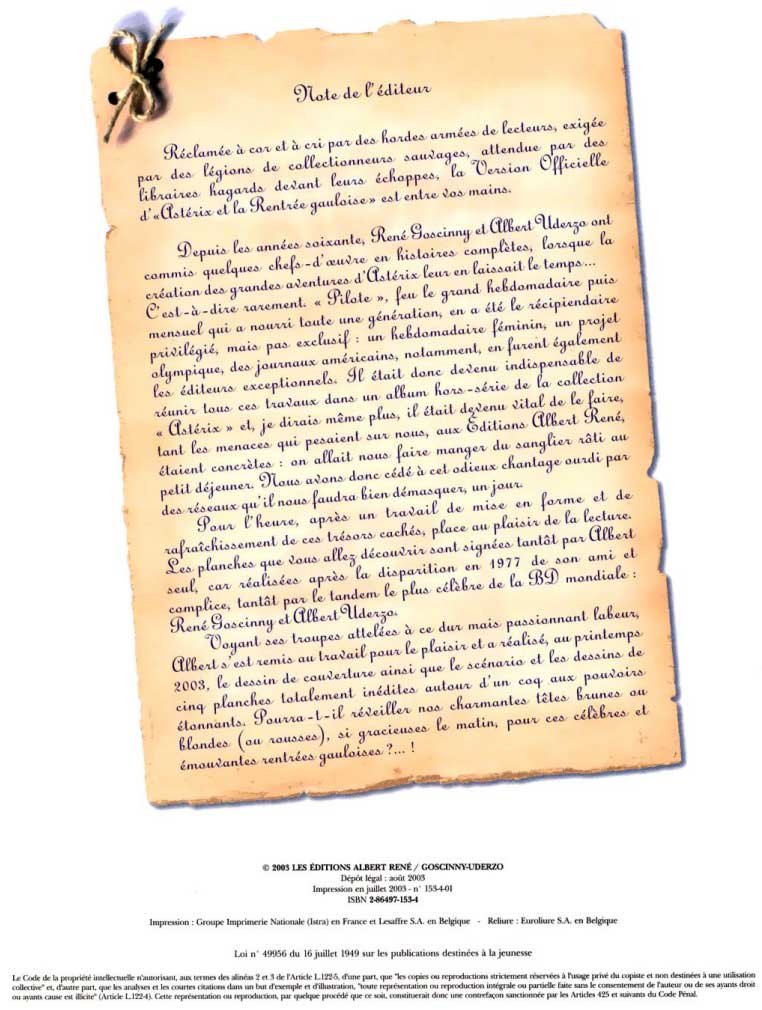 Note de l'éditeur
Réclamée à cor et à cri par des hordes armées de lecteurs, exigée
par des légions de collectionneurs sauvages, attendue par des
libraires hagards devant leurs échoppes, la Version Officielle
d'«Astérix et la Rentrée gauloise» est entre vos mains.
Depuis les années soixante, René Goscinny et Albert Uderzo ont
commis quelques chefs-d'œuvre en histoires complètes, lorsque la
création des grandes aventures d'Astérix leur en laissait le temps...
C'est-à-dire rarement. « Pilote », feu le grand hebdomadaire puis
mensuel qui a nourri toute une génération, en a été le récipiendaire
privilégié, mais pas exclusif : un hebdomadaire féminin, un projet
olympique, des journaux américains, notamment, en furent également
les éditeurs exceptionnels. Il était donc devenu indispensable de
réunir tous ces travaux dans un album hors-série de la collection
« Astérix » et, je dirais même plus, il était devenu vital de le faire,
tant les menaces qui pesaient sur nous, aux Éditions Albert René,
étaient concrètes : on allait nous faire manger du sanglier rôti au
petit déjeuner. Nous avons donc cédé à cet odieux chantage ourdi par
des réseaux qu'il nous faudra bien démasquer, un jour.
Pour l'heure, après un travail de mise en forme et de
rafraîchissement de ces trésors cachés, place au plaisir de la lecture.
Les planches que vous allez découvrir sont signées tantôt par Albert
seul, car réalisées après la disparition en 1977 de son ami et
complice, tantôt par le tandem le plus célèbre de la BD mondiale :
René Goscinny et Albert Uderzo.
Voyant ses troupes attelées à ce dur mais passionnant labeur,
Albert s'est remis au travail pour le plaisir et a réalisé, au printemps
2003, le dessin de couverture ainsi que le scénario et les dessins de
cinq planches totalement inédites autour d'un coq aux pouvoirs
étonnants. Pourra-t-il réveiller nos charmantes têtes brunes ou
blondes (ou rousses), si gracieuses le matin, pour ces célèbres et
émouvantes rentrées gauloises ?... !
© 2003 LES ÉDITIONS ALBERT RENÉ / GOSCINNY-UDERZO
Dépôt légal : août 2003
Impression en juillet 2003 - n° 153-4-01
ISBN 2-86497-153-4
Impression : Groupe Imprimerie Nationale (Istra) en France et Lesaffre S.A. en Belgique - Reliure : Euroliure S.A. en Belgique
Loi n° 49956 du 16 juillet 1949 sur les publications destinées à la jeunesse
Le Code de la propriété intellectuelle n'autorisant, aux termes des alinéas 2 et 3 de l'Article L.122-5, d'une part, que "les copies ou reproductions strictement réservées à l'usage privé du copiste et non destinées à une utilisation
collective" et, d'autre part, que les analyses et les courtes citations dans un but d'exemple et d'illustration, "toute représentation ou reproduction intégrale ou partielle faite sans le consentement de l'auteur ou de ses ayants droit
ou ayants cause est illicite" (Article L.122-4). Cette représentation ou reproduction, par quelque procédé que ce soit, constituerait donc une contrefaçon sanctionnée par les Articles 425 et suivants du Code Pénal.